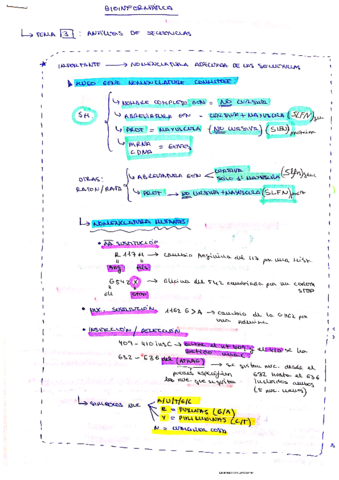 BIOINFORMÁTICA
TEMA 3: ANÁLISIS DE SECUENCIAS
* IMPORTANTE → NOMENCLATURA ADECUADA DE LAS SECUENCIAS
HUGO GENE NOMENCLATURE COMMITTEE
NOMBRE COMPLETO GEN = NO CURSIVA
ABREVIATURA GEN = CURSIVA + MAYÚSCULA (SLFN) gen
PROT = MAYÚSCULA (NO CURSIVA) (SLFN) proteína
mRNA
cDNA = GENES
OTRAS:
RATON/RATA
ABREVIATURA GEN CURSIVA
SOLO 1ª MAYÚSCULA (Slfn) gen
PROT → NO CURSIVA + MAYÚSCULA (SLFN) prot
NOMENCLATURA MUTANTES
• AA SUSTITUCIÓN
R 117 H → cambio Arginina del 117 por una Hist.
Arg His
G542 X → Glicina de 542 cambiada por un codón STOP
Gli STOP
• NUC. SUSTITUCIÓN 1162 G>A → cambio de la G 1162 por una adenina
• INSERCIÓN / DELECCIÓN
409-410 insC → entre el nt 409 y el 410 se ha metido una C
682-686 del (ATAAG) → se quitan nuc. desde el 682 hasta el 686 incluidos ambos (5 nuc. menos)
puedes especificar los nuc. que se quitan
SÍMBOLOS NUC
A/U/T/G/C
R = PURINAS (G/A)
Y = PIRIMIDINAS (C/T)
N = CUALQUIER COSA